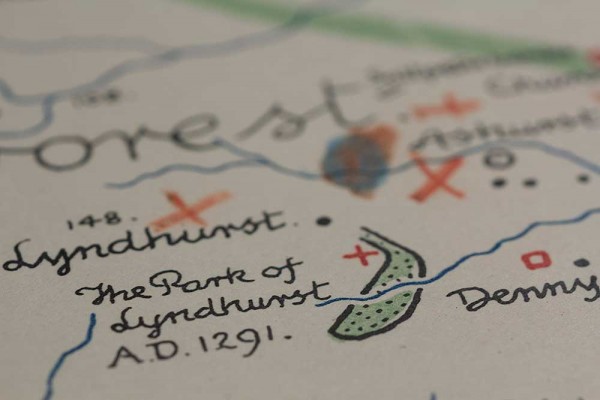 orest
Ashurst
148.
Lyndhurst.
The Park of
Lyndhurst
A.D. 1291.
Denny